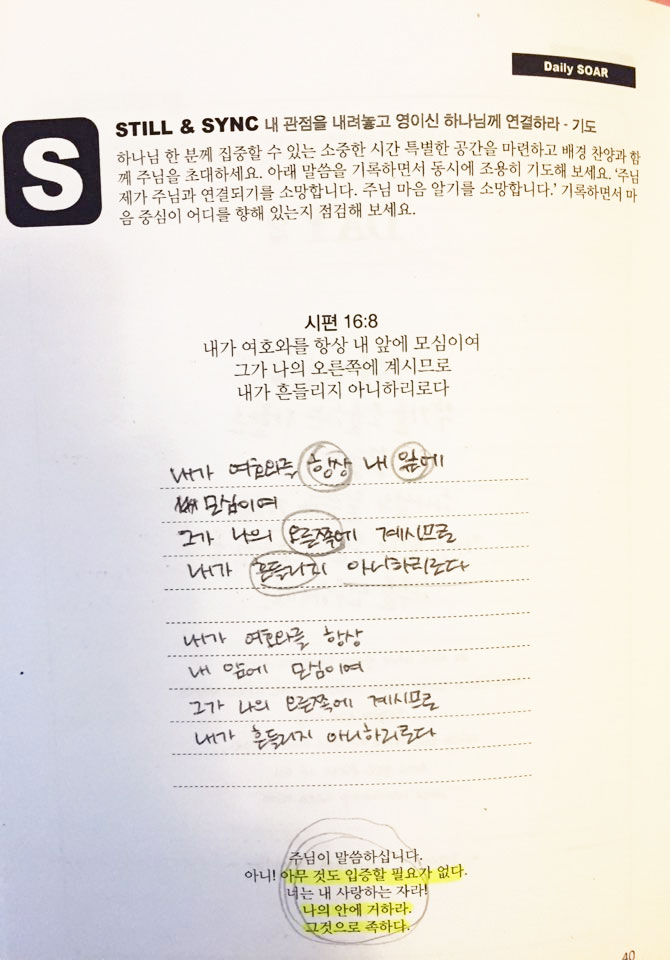 Daily SOAR
S
STILL & SYNC 내 관점을 내려놓고 영이신 하나님께 연결하라 - 기도
하나님 한 분께 집중할 수 있는 소중한 시간 특별한 공간을 마련하고 배경 찬양과 함
께 주님을 초대하세요. 아래 말씀을 기록하면서 동시에 조용히 기도해 보세요. ‘주님
제가 주님과 연결되기를 소망합니다. 주님 마음 알기를 소망합니다.’ 기록하면서 마
음 중심이 어디를 향해 있는지 점검해 보세요.
시편 16:8
내가 여호와를 항상 내 앞에 모심이여
그가 나의 오른쪽에 계시므로
내가 흔들리지 아니하리로다
내가 여호와를 항상 내 앞에
모심이여
그가 나의 오른쪽에 계시므로
내가 흔들리지 아니하리로다
내가 여호와를 항상
내 앞에 모심이여
그가 나의 오른쪽에 계시므로
내가 흔들리지 아니하리로다
주님이 말씀하십니다.
아니! 아무 것도 입증할 필요가 없다.
너는 내 사랑하는 자라!
나의 안에 거하라.
그것으로 족하다.
40